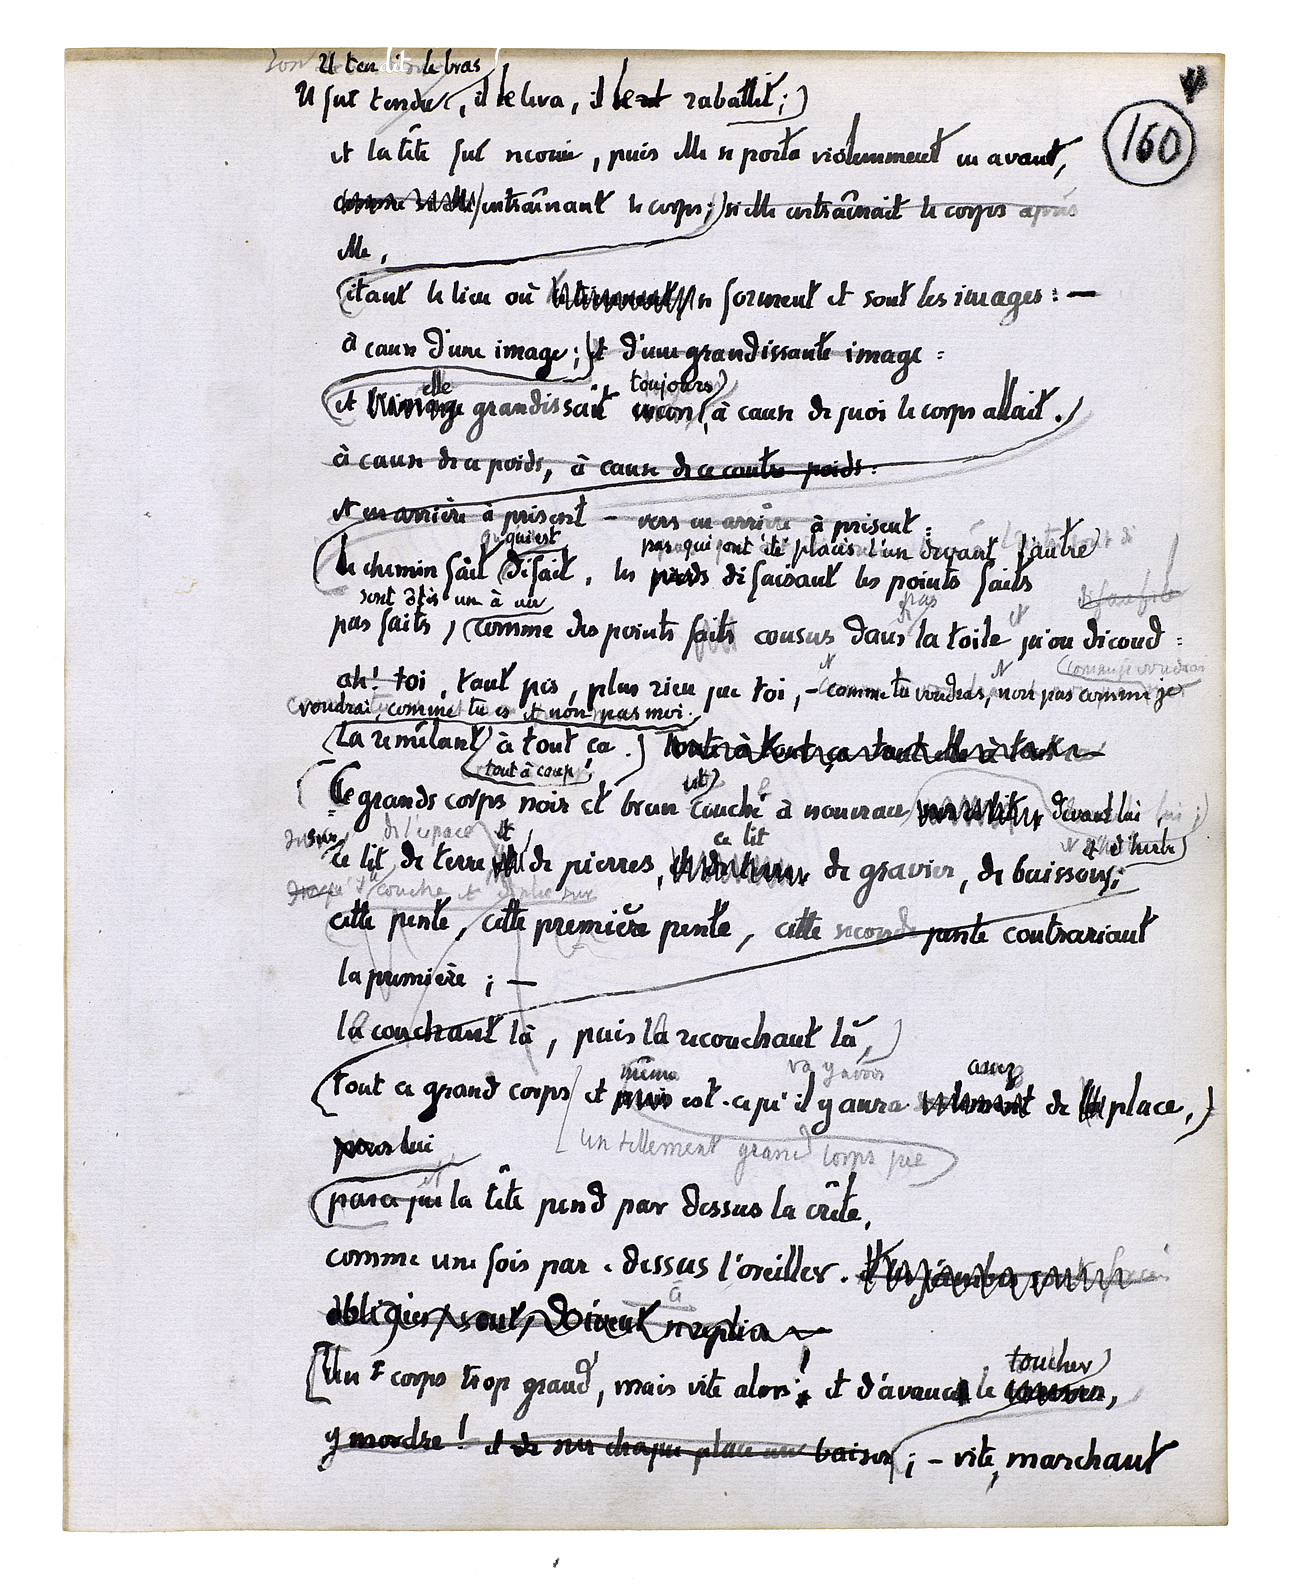 Il tendit le bras
Il fut tendu, il le leva, il le rabattit;
160
et la tête fut secouée, puis elle se porta violemment en avant,
entraînant le corps; si elle entraînait le corps après
elle,
étant le lieu où se forment et sont les images : —
à cause d'une image; et d'une grandissante image :
elle toujours
et l'image grandissait encore, à cause de quoi le corps allait.
à cause de ce poids, à cause de ce contre-poids :
et en arrière à présent — vers en arrière à présent :
qui est pas qui ont été placés l'un devant l'autre
le chemin fait défait, les pieds défaisant les points faits
sont ôtés un à un pas
pas faits, comme des points faits cousus dans la toile qu'on découd :
(comme je voudrai
ah! toi, tant pis, plus rien que toi, — comme tu voudras, non pas comme je
voudrai, comme tu es et non pas moi.
La remêlant à tout ça.
tout à coup!
Ce grands corps noir et brun couché à nouveau devant lui,
sur de l'espace et ce lit et d'herbe
ce lit, de terre de pierres, de gravier, de buissons;
cette pente, cette première pente, cette seconde pente contrariant
la première ; —
la couchant là, puis la recouchant là,
même va y avoir assez
tout ce grand corps et puis est-ce qu'il y aura de place,
pour lui
un tellement grand corps que
et
parce que la tête pend par dessus la crête,
comme une fois par-dessus l'oreiller.
à
obligées, sont, doivent se replier
toucher
Un corps trop grand, mais vite alors! et d'avance le
y mordre! et de sur chaque place un baiser; — vite, marchant